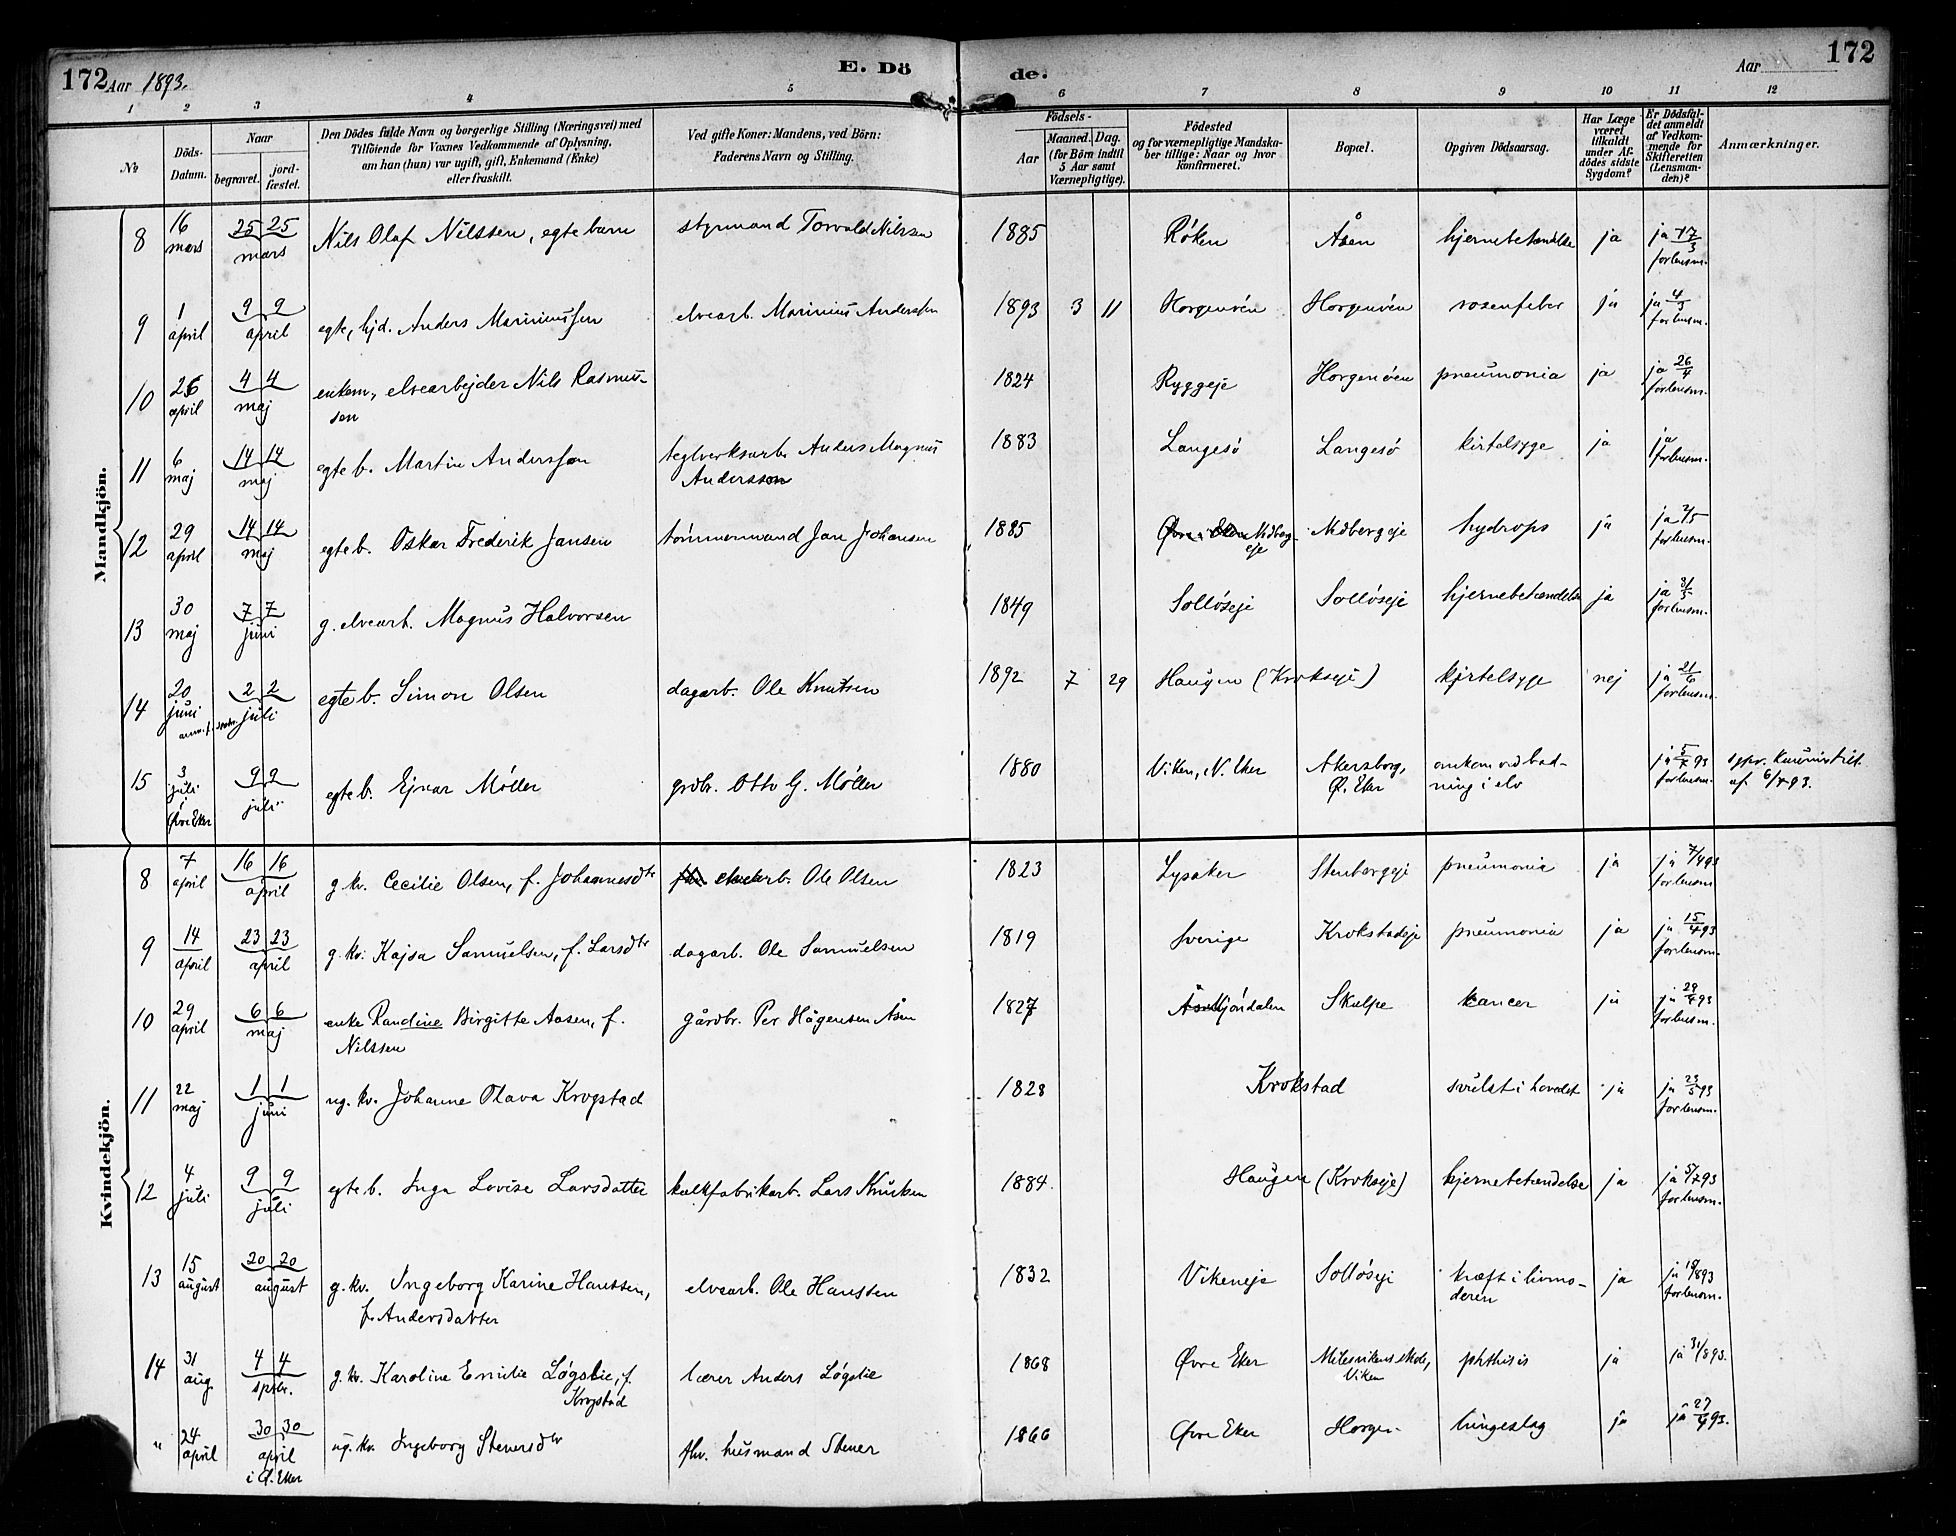 172 Aar 1893. E. Dö de. Aar 172
1 2 3 4 5 6 7 8 9 10 11 12
No Döds-Datum. Naar begravet. jord-fæstet. Den Dödes fulde Navn og borgerlige Stilling (Næringsvei) med Tilföiende for Voxnes Vedkommende af Oplysning, om han (hun) var ugift, gift, Enkemand (Enke) eller fraskilt. Ved gifte Koner: Mandens, ved Börn: Faderens Navn og Stilling. Födsels- Aar Maaned. Dag. (for Börn indtil 5 Aar samt Værnepligtige). Födested og for værnepligtige Mandskaber tillige: Naar og hvor konfirmeret. Bopæl. Opgiven Dödsaarsag. Har Læge været tilkaldt under Afdödes sidste Sygdom? Er Dödsfaldet anmeldt af Vedkommende for Skifteretten (Lensmanden)? Anmærkninger.
Mandkjön.
8 16 mars 25 25 mars Nils Olaf Nilssen, egte barn styrmand Torvald Nilssen 1885 Røken Åsen hjernebetændelse ja ja 17/3 for lensm.
9 1 april 9 9 april egte, hjd. Anders Mariniussen elvearb. Marinius Anderssen 1893 3 11 Horgenøen Horgenøen rosenfeber ja ja 4/3 for lensm.
10 26 april 4 4 maj enkem., elvearbejder Nils Rasmus-
sen 1824 Ryggeje Horgenøen pneumonia ja ja 26/4 for lensm.
11 6 maj 14 14 maj egte b. Martin Anderssen teglverksarb. Anders Magnus
Andersson 1883 Langesø Langesø kirtelsyge ja ja for lensm.
12 29 april 14 14 maj egte b. Oskar Frederik Jansen tømmermand Jan Johansen 1885 Øvre Eker Midberg-
eje Midbergeje hydrops ja ja 2/5 for lensm.
13 30 maj 7 7 juni g. elvearb. Magnus Halvorsen 1849 Solløseje Solløseje hjernebetændelse ja ja 31/5 for lensm.
14 20 juni 2 2 juli egte b. Simon Olsen dagarb. Ole Knutsen 1892 7 29 Haugen (Krokseje) kjirtelsyge nej ja 21/6 for lensm.
15 3 juli i Øvre Eker 9 9 juli egte b. Ejnar Møller grdbr. Otto G. Møller 1880 Viken, N. Eker Akersborg, Ø. Eker omkom ved bad-
ning i elv ja 5/7 93 for lensm. af 6/7 93.
Kvindekjön.
8 7 april 16 16 april g. kv. Cecilie Olsen, f. Johannesdtr elvearb. Ole Olsen 1823 Lysaker Stenbergeje pneumonia ja ja 7/4 93 for lensm.
9 14 april 23 23 april g. kv. Kajsa Samuelsen, f. Larsdtr dagarb. Ole Samuelsen 1819 Sverige Krokstadeje pneumonia ja ja 15/4 93 for lensm.
10 29 april 6 6 maj enke Randine Birgitte Aasen, f.
Nilssen gårdbr. Per Hågensen Åsen 1827 Mjøndalen Skalpe kancer ja ja 29/4 93 for lensm.
11 22 maj 1 1 juni ug. kv. Johanne Olava Krogstad 1828 Krokstad svulst i hovedet ja ja 23/5 93 for lensm.
12 4 juli 9 9 juli egte b. Inga Lovise Larsdatter kalkfabrikarb. Lars Knutsen 1884 Haugen (Krokseje) hjernebetændelse ja ja 5/7 93 for lensm.
13 15 august 20 20 august g. kv. Ingeborg Karine Hanssen,
f. Andersdatter elvearb. Ole Hanssen 1832 Vikeneje Solløseje kræft i livmo-
deren ja ja 18/8 93 for lensm.
14 31 aug. 4 4 septbr. g. kv. Karoline Emilie Løgslie, f.
Krogstad lærer Anders Løgslie 1868 Øvre Eker Milesvikens skole, Viken phthisis ja ja 31/8 93.
" 24 april 30 30 april i Ø. Eker ug. kv. Ingeborg Steuersdtr fhv. husmand Steuer 1866 Øvre Eker Horgen lungeslag ja ja 27/4 93.